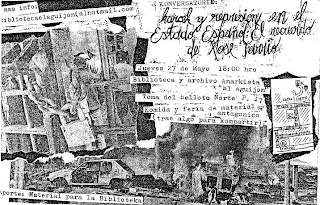 mas info:
bibliotecaelaguijon(a)hotmail.com
KONVERSATORIO:
karcel y represion en el
Estado Español. El recuerdo
de Xose Tarrio
Jueves 27 de Mayo 18:00 hrs
Biblioteca y archivo Anarkista
El Aguijon
Toma del Belloto Norte P. 17
Komida y feria de material
antagonico
(trae algo para konpartir)
Aporte: Material para la Biblioteka